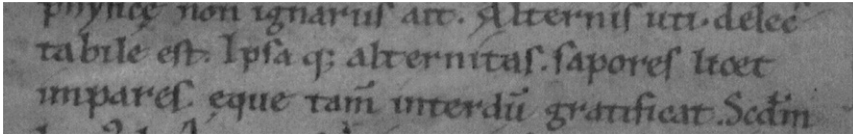 phyſicę non ignaruſ ait. Alterniſ uti. delec
tabile eſt. Ipſa q; alternitaſ. ſaporeſ licet
impareſ. eque tam̄ interdū gratificat. Scdm̄